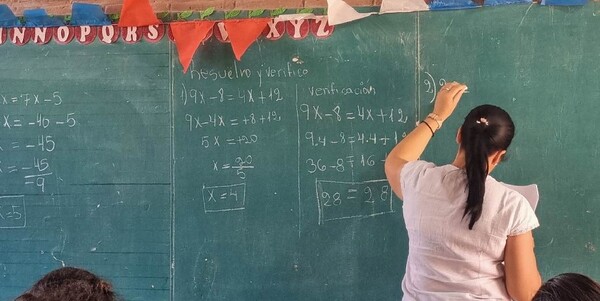 N N O P Q R S X Y Z
x = 7x - 5
x = -40 - 5
x = -45
-45
-9
x = 5
Resuelvo y verifico
1) 9x - 8 = 4x + 12
9x - 4x = +8 + 12
5x = +20
x = 20
5
x = 4
verificación
9x - 8 = 4x + 12
9.4 - 8 = 4.4 + 12
36 - 8 = 16
28 = 28
2) 9